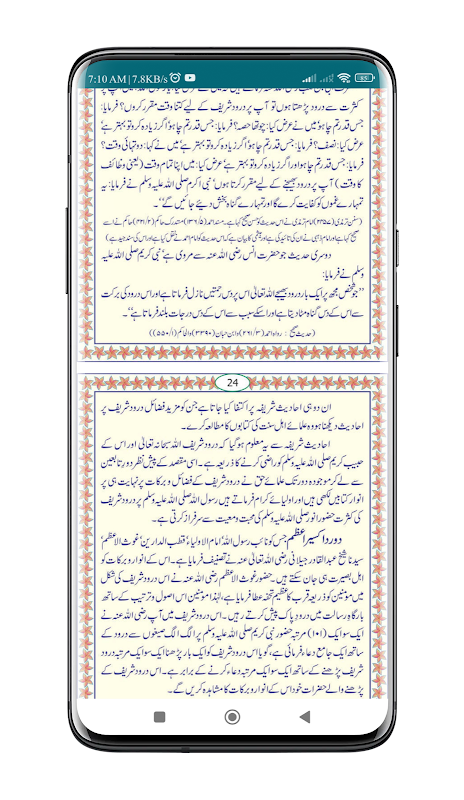 7:10 AM | 7.8KB/s
کثرت سے درود پڑھتا ہوں تو آپ پر درود شریف کے لیے کتنا وقت مقرر کروں؟ فرمایا:
جس قدر تم چاہو میں نے عرض کیا: چوتھا حصہ؟ فرمایا: جس قدر تم چاہو اگر زیادہ کرو تو بہتر ہے
عرض کیا: نصف؟ فرمایا: جس قدر تم چاہو اگر زیادہ کرو تو بہتر ہے میں نے کہا: دو تہائی وقت؟
فرمایا: جس قدر تم چاہو اور اگر زیادہ کرو تو بہتر ہے عرض کیا: میں اپنا تمام وقت (یعنی وظائف
کا وقت) آپ پر درود بھیجنے کے لیے مقرر کرتا ہوں نبی اکرم صلی اللہ علیہ وسلم نے فرمایا: یہ
تمہارے غموں کو کفایت کرے گا اور تمہارے گناہ بخش دیئے جائیں گے‘‘۔
دوسری حدیث جو حضرت انس رضی اللہ عنہ سے مروی ہے نبی کریم صلی اللہ علیہ
وسلم نے فرمایا:
’’جو شخص مجھ پر ایک بار درود بھیجے اللہ تعالیٰ اس پر دس رحمتیں نازل فرماتا ہے اور اس درود کی برکت
سے اس کے دس گناہ مٹا دیتا ہے اور اسکے سبب سے اس کے دس درجات بلند فرماتا ہے‘‘۔
(حدیث صحیح: رواہ احمد (۲۶۱/۳) وابن حبان (۲۳۹۰) والحاکم (۵۵۰/۱))
24
ان دو ہی احادیث شریفہ پر اکتفا کیا جاتا ہے جن کو مزید فضائل درود شریف پر
احادیث دیکھنا ہو وہ علمائے اہل سنت کی کتابوں کا مطالعہ کرے۔
احادیث شریفہ سے یہ معلوم ہو گیا کہ درود شریف اللہ سبحانہ تعالیٰ اور اس کے
حبیب کریم صلی اللہ علیہ وسلم کو راضی کرنے کا ذریعہ ہے۔ اسی مقصد کے پیش نظر دور تابعین
سے لے کر موجودہ دور تک علمائے حق نے درود شریف کے فضائل و برکات پر نہایت ہی پر
انوار کتابیں لکھی ہیں اور اولیائے کرام فرماتے ہیں رسول اللہ صلی اللہ علیہ وسلم پر درود شریف
کی کثرت حضور انور صلی اللہ علیہ وسلم کی محبت و معیت سے سرفراز کرتی ہے۔
درود اکسیر اعظم جس کو نائب رسول اللہ امام الاولیاء قطب الدارین غوث الاعظم
سیدنا شیخ عبدالقادر جیلانی رضی اللہ تعالیٰ عنہ نے تصنیف فرمایا ہے۔ اس کے انوار و برکات کو
اہل بصیرت ہی جان سکتے ہیں۔ حضور غوث الاعظم رضی اللہ عنہ نے اس درود شریف کی شکل
میں مؤمنین کو ذریعہ قرب کا عظیم تحفہ عطا فرمایا ہے، لہٰذا مؤمنین اس اصول و ترتیب کے ساتھ
بارگاہ رسالت میں درود پاک پیش کرتے رہیں۔ اس درود شریف میں آپ رضی اللہ عنہ نے
ایک سو ایک (۱۰۱) مرتبہ حضور نبی کریم صلی اللہ علیہ وسلم پر الگ الگ صیغوں سے درود کے
ساتھ ایک جامع دعاء فرمائی ہے، گویا اس درود شریف کو ایک بار پڑھنا ایک سو ایک مرتبہ درود
شریف پڑھنے کے ساتھ ایک سو ایک مرتبہ دعاء کرنے کے برابر ہے۔ اس درود شریف کے
پڑھنے والے حضرات خود اس کے انوار و برکات کا مشاہدہ کریں گے۔